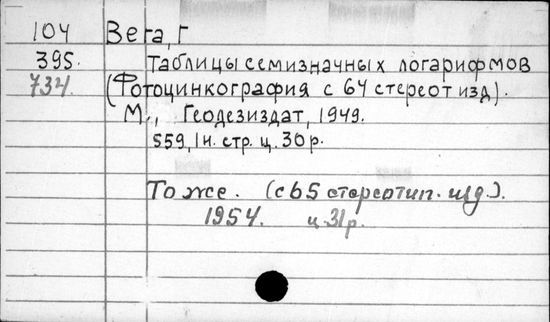 104 Вега, Г
395. Таблицы семизначных логарифмов
734. (Фотоцинкография с 64 стереот изд).
М., Геодезиздат, 1949.
559, 1 н. стр. ц. 30 р.
То же. (с 65 стереотип. изд.).
1954. ц. 31 р.